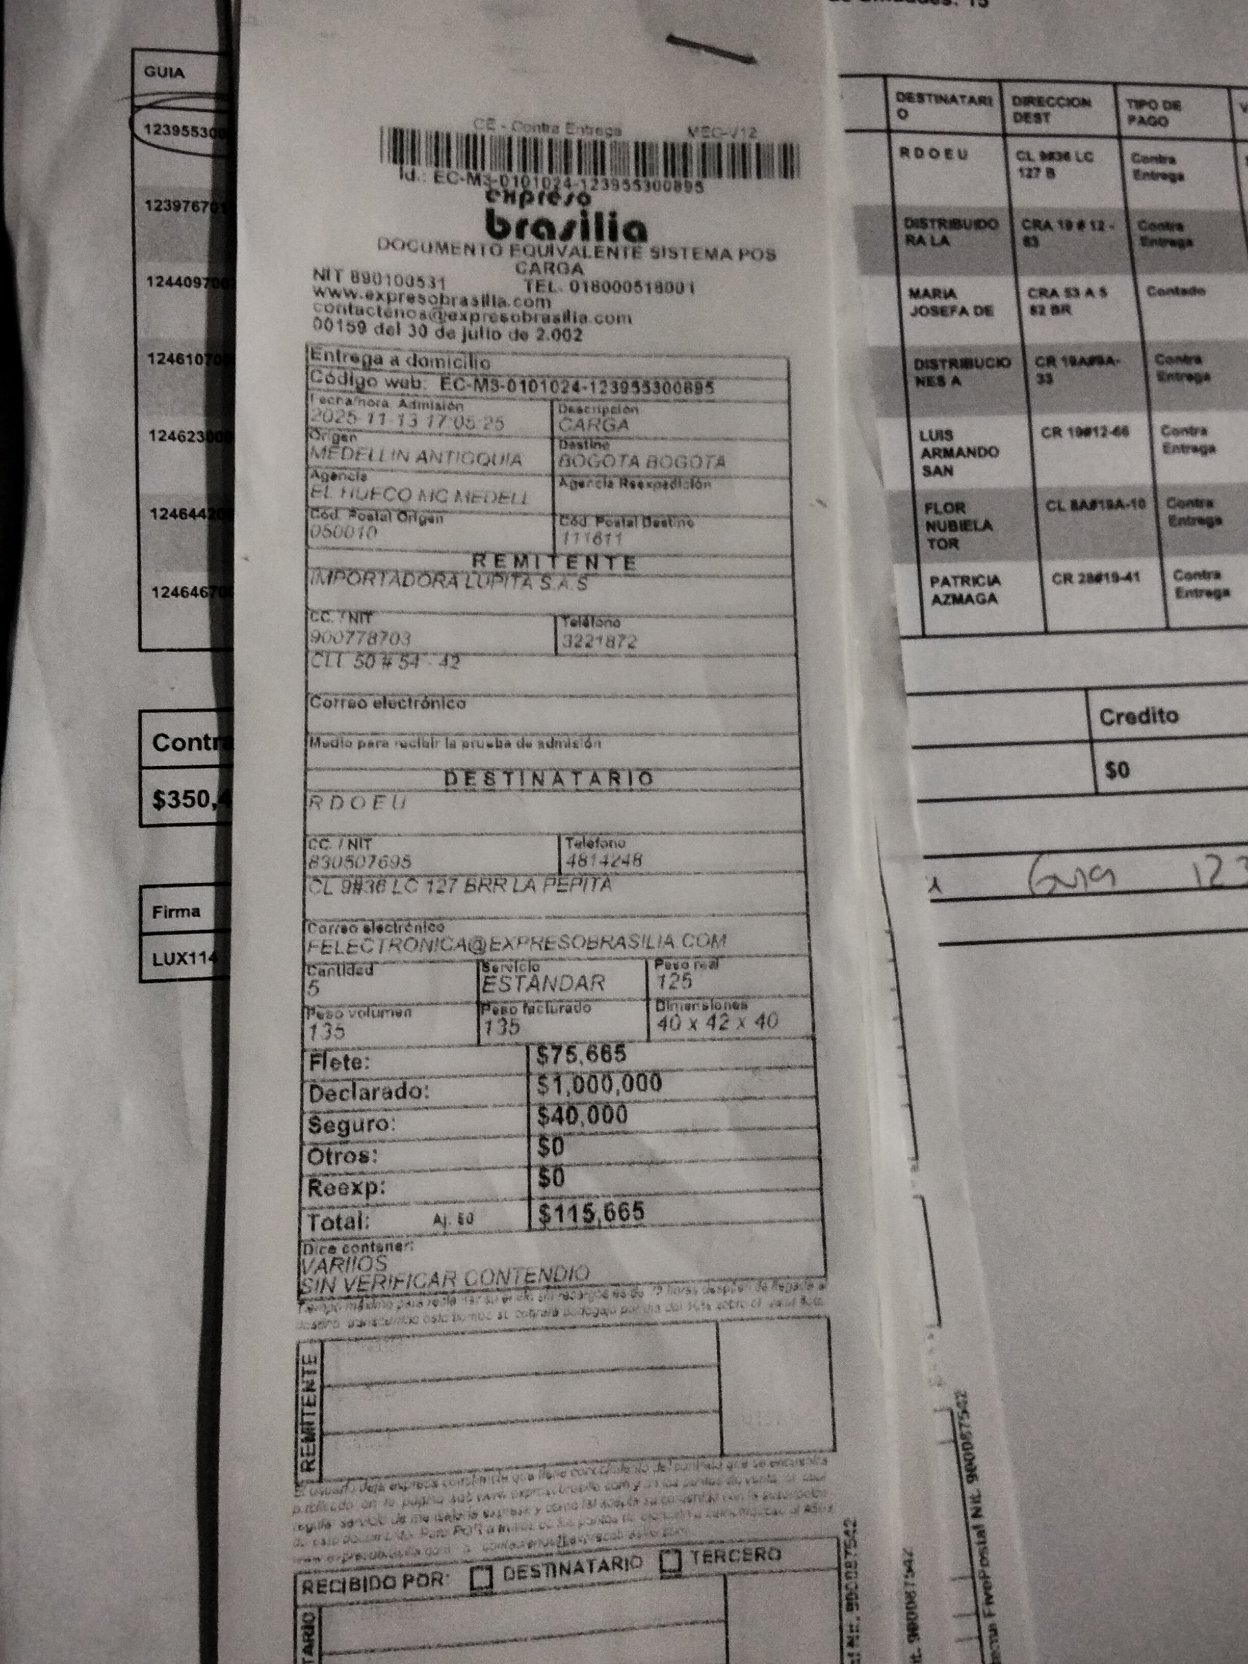 de Unidades: 15
GUIA
123955300
123976701
1244097007
124610700
124623000
124644200
124646700
Contra
$350,4
Firma
LUX114
CE - Contra Entrega MEC-V12
Id.: EC-M3-0101024-123955300895
expreso
brasilia
DOCUMENTO EQUIVALENTE SISTEMA POS
CARGA
NIT 890100531 TEL. 018000518001
www.expresobrasilia.com
contactenos@expresobrasilia.com
00159 del 30 de julio de 2.002
Entrega a domicilio
Código web: EC-M3-0101024-123955300895
Fecha/hora Admisión Descripción
2025-11-13 17:05:25 CARGA
Origen Destino
MEDELLIN ANTIOQUIA BOGOTA BOGOTA
Agencia Agencia Reexpedición
EL HUECO MC MEDELL
Cód. Postal Origen Cód. Postal Destino
050010 111611
REMITENTE
IMPORTADORA LUPITA S.A.S
CC. / NIT Teléfono
900778703 3221872
CLL 50 # 54 - 42
Correo electrónico
Medio para recibir la prueba de admisión
DESTINATARIO
R D O E U
CC. / NIT Teléfono
830507695 4814248
CL 9#36 LC 127 BRR LA PEPITA
Correo electrónico
FELECTRONICA@EXPRESOBRASILIA.COM
Cantidad Servicio Peso real
5 ESTÁNDAR 125
Peso volumen Peso facturado Dimensiones
135 135 40 x 42 x 40
Flete: $75,665
Declarado: $1,000,000
Seguro: $40,000
Otros: $0
Reexp: $0
Total: Aj. $0 $115,665
Dice contener:
VARIIOS
SIN VERIFICAR CONTENDIO
REMITENTE
RECIBIDO POR: DESTINATARIO TERCERO
TARIO
DESTINATARI DIRECCION TIPO DE V
O DEST PAGO
R D O E U CL 9#36 LC Contra
127 B Entrega
DISTRIBUIDO CRA 19 # 12 - Contra
RA LA 63 Entrega
MARIA CRA 53 A 5 Contado
JOSEFA DE 52 BR
DISTRIBUCIO CR 19A#9A- Contra
NES A 33 Entrega
LUIS CR 19#12-66 Contra
ARMANDO Entrega
SAN
FLOR CL 8A#19A-10 Contra
NUBIELA Entrega
TOR
PATRICIA CR 28#19-41 Contra
AZMAGA Entrega
Credito
$0
Guia 123
Nit. 900087542
it. 900087542
FivePostal Nit. 900087542